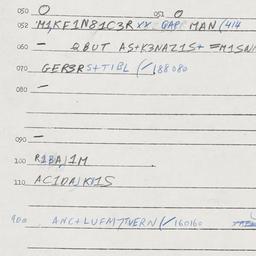 050 O 051 O
052 M1KF1N81C3R XX GAP MAN (414
060 — QBUT AS+K3NAZ1S+ =M1SN
070 GER3RS+T1BL (/188080
080 —
090 —
100 R1BA)1M
110 AC1DA)KV1S
900 ANC+LUFM7TVERN (/160160